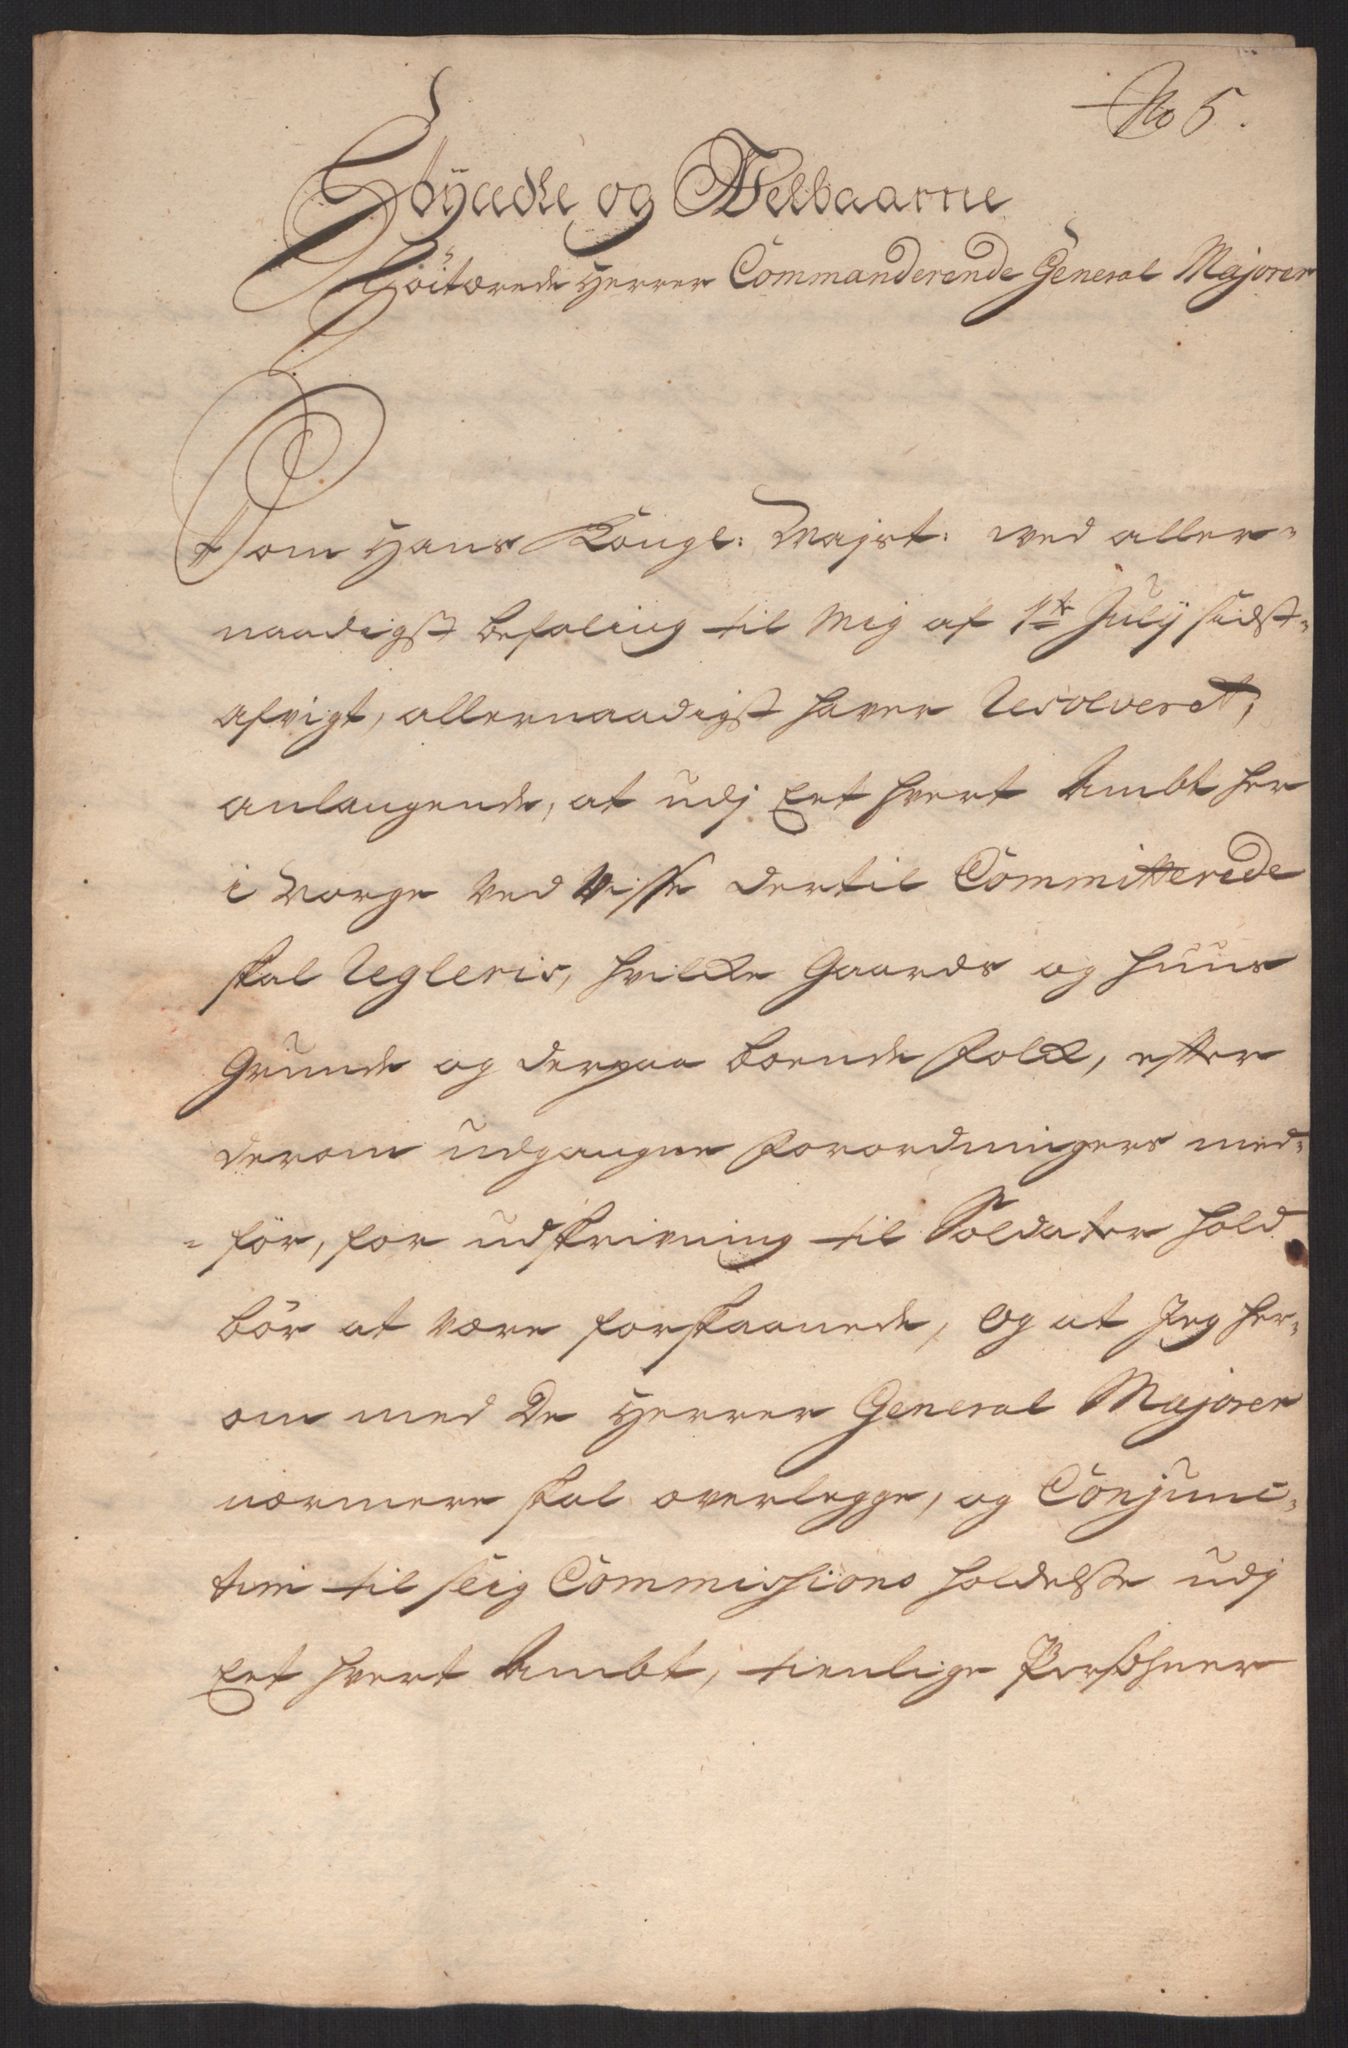 No 5.
Höyædle og Welbaarne
Höitærede Herrer Commanderende General Majorer
Som Hans Kongl: Majst: ved aller-
naadigst befaling til Mig af 1te July sidst-
afvigt, allernaadigst haver Resolveret,
anlangende, at udj Eet hvert Ambt her
i Norge ved visse dertil Committerede
skal Regleris, hvilke Gaards og Huus
Grunde og derpaa boende Folk, efter
derom udgangne Forordningers med-
-för, for udskrivning til Soldater hold
bör at være forskaanede, Og at Jeg her-
om med De Herrer General Majorer
nærmere skal overlegge, og Conjunc-
tim til slig Commissions holdelse udj
Eet hvert Ambt, tienlige Persohner